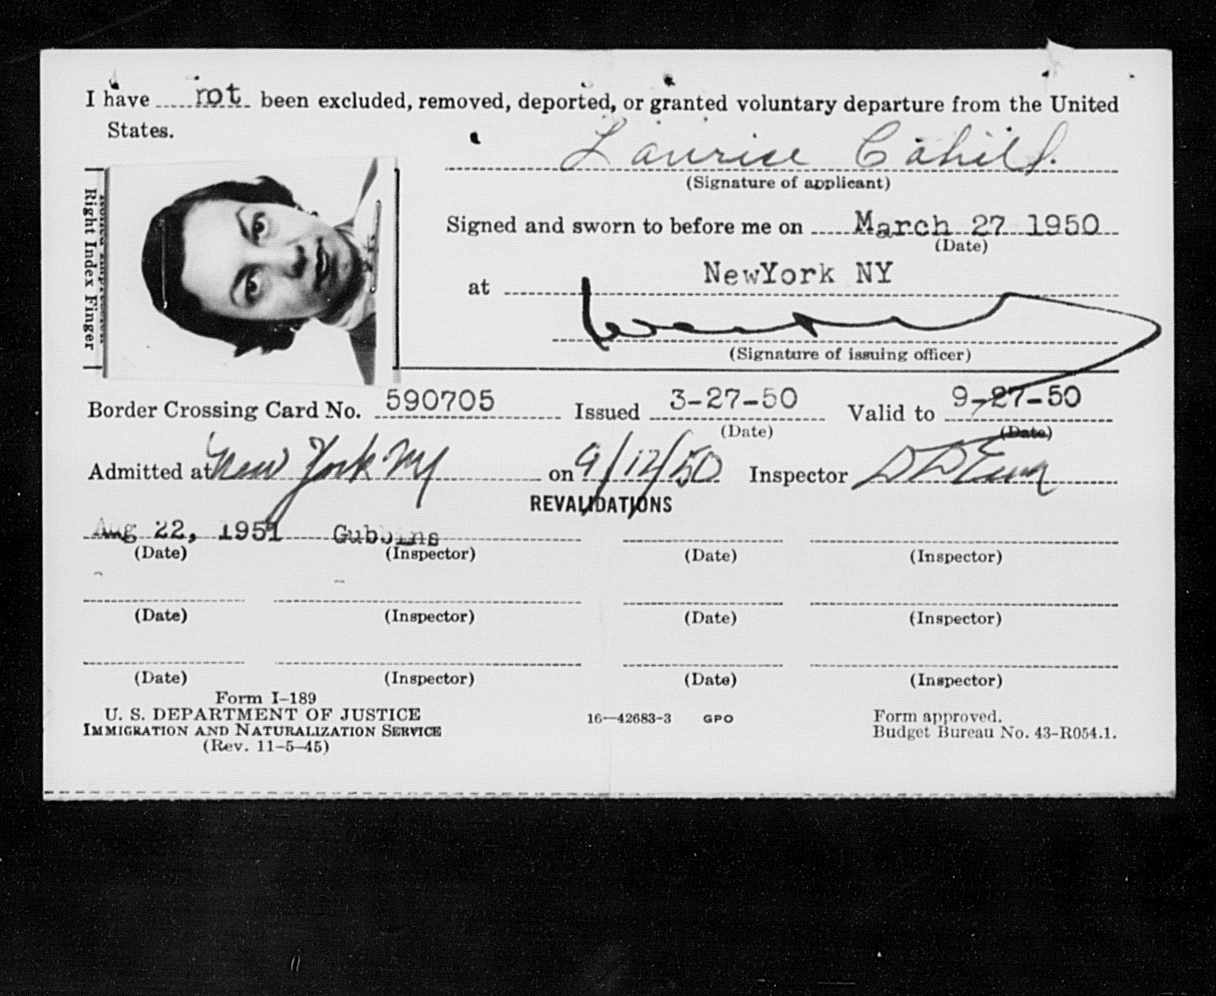 I have not been excluded, removed, deported, or granted voluntary departure from the United
States.
Laurise Cahill.
(Signature of applicant)
Right Index Finger
Signed and sworn to before me on March 27 1950
(Date)
at NewYork NY
(Signature of issuing officer)
Border Crossing Card No. 590705 Issued 3-27-50 Valid to 9-27-50
(Date) (Date)
Admitted at New York NY on 9/12/50 Inspector
REVALIDATIONS
Aug 22, 1951 Gubbins
(Date) (Inspector) (Date) (Inspector)
(Date) (Inspector) (Date) (Inspector)
(Date) (Inspector) (Date) (Inspector)
Form I-189
U. S. DEPARTMENT OF JUSTICE
IMMIGRATION AND NATURALIZATION SERVICE
(Rev. 11-5-45)
16—42683-3 GPO
Form approved.
Budget Bureau No. 43-R054.1.